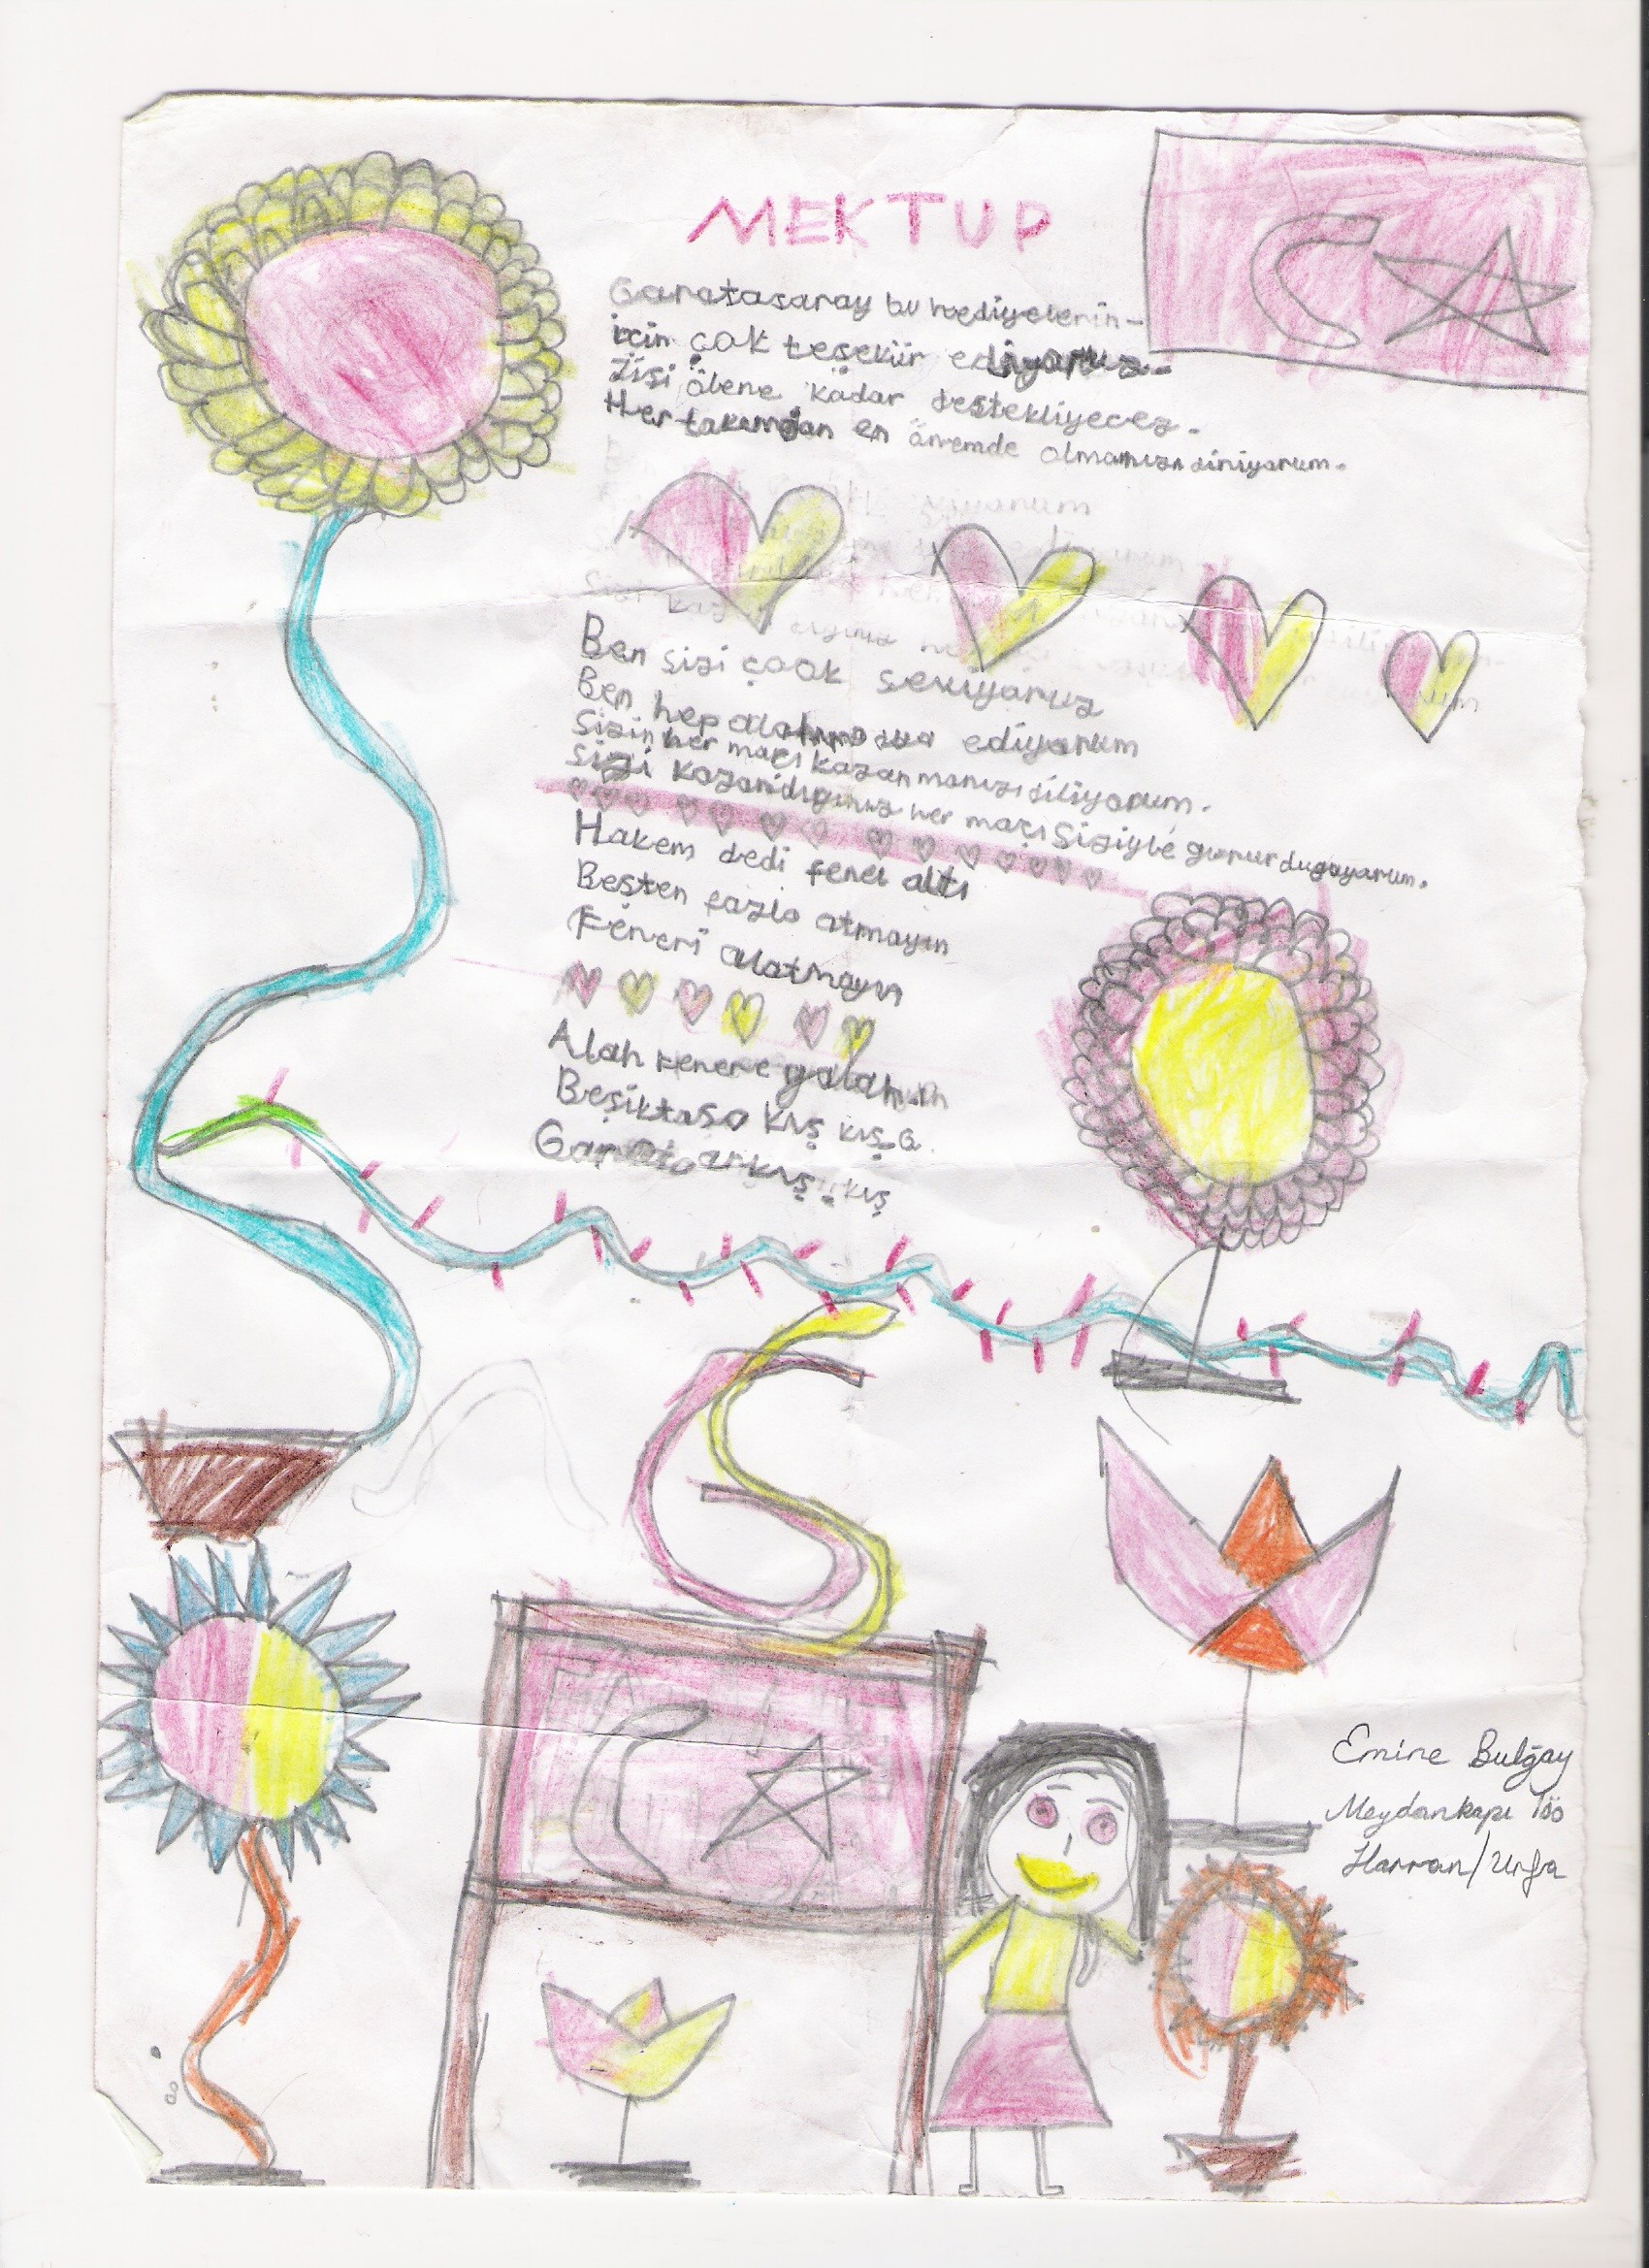 MEKTUP
Garatasaray bu hediyelerin-
için çok teşekür ediyoruz.
Zisi ölene kadar destekliyecez.
Her takımdan en önemde olmanızı diniyorum.
Ben sizi çook seviyoruz
Ben hep ediyorum
Sizin her maçı kazanmanızı diliyorum.
Sizi kazandıgınız her maçı Siziyle gurur duguyorum.
Hakem dedi fener altı
Beşten fazla atmayın
Feneri alatmayın
Alah Fenere
Beşiktaşa kış kış G.
kış kış
GS
Emine Bulğay
Meydankapı İöo
Harran/Urfa